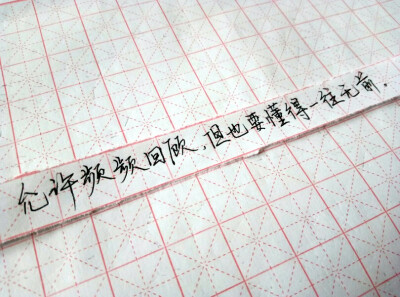 允许频频回顾,但也要懂得一往无前.